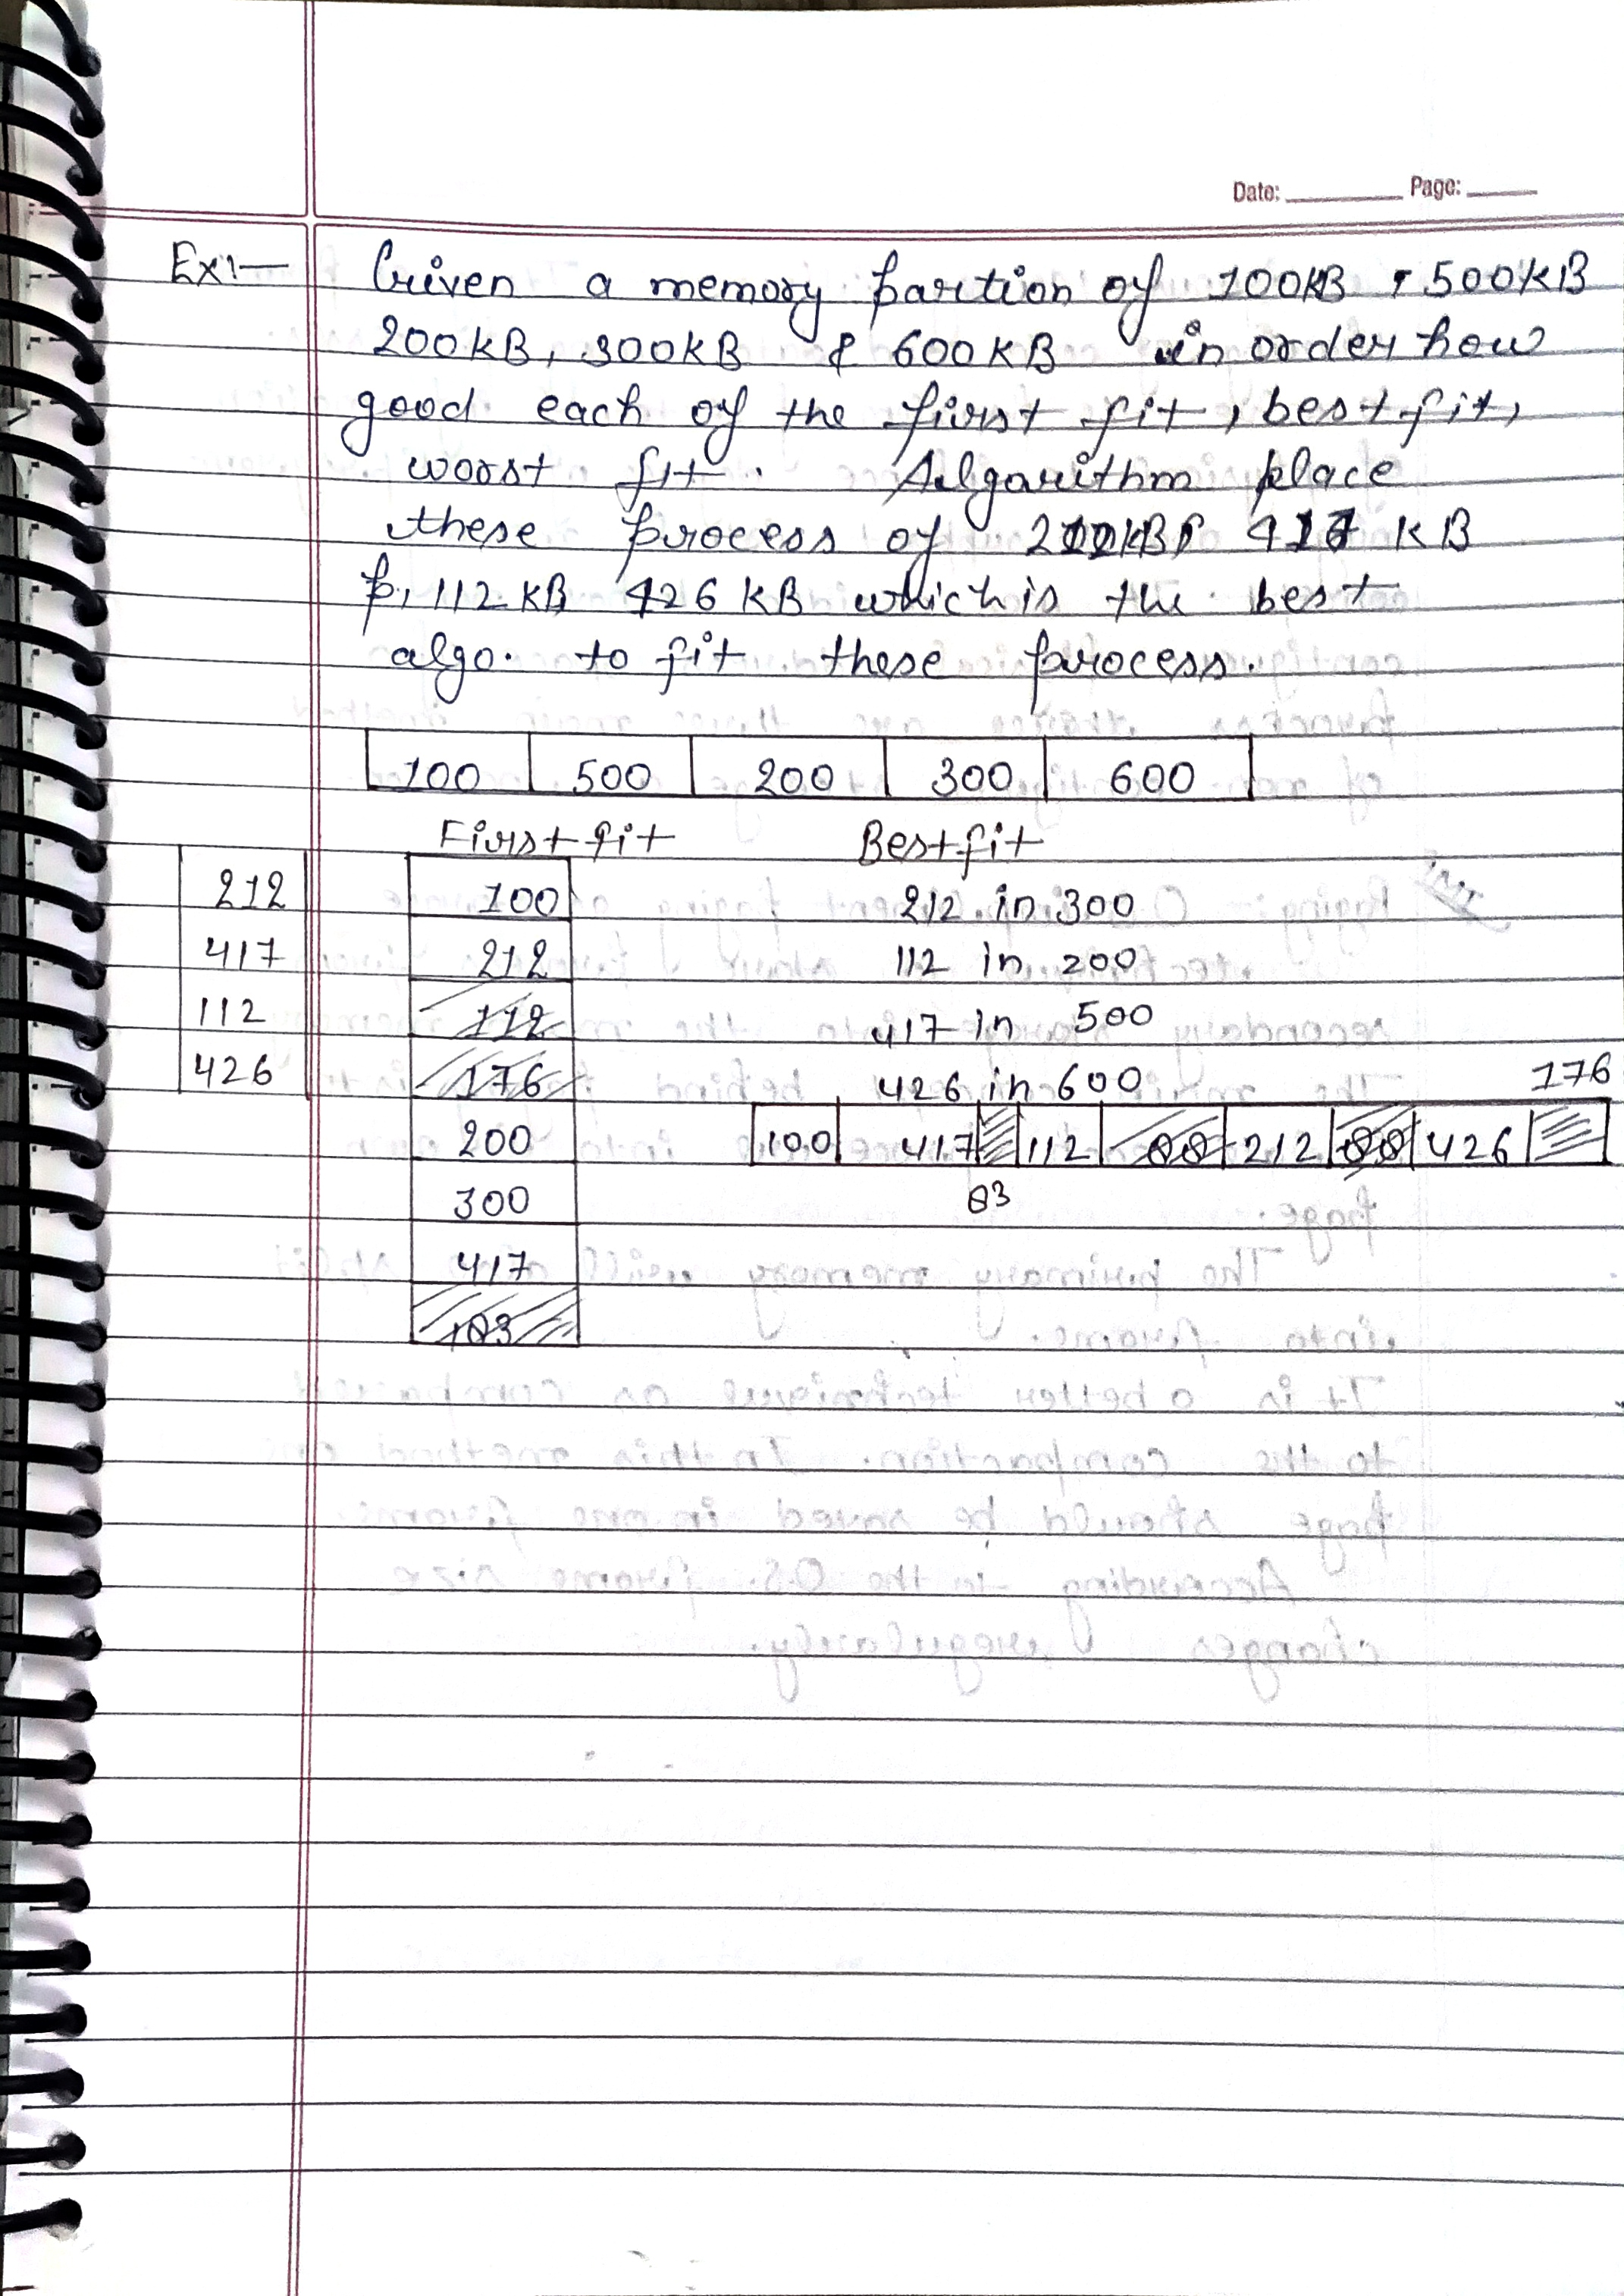 Date: Page:
Ex:- Given a memory partion of 100KB, 500KB
200KB, 300KB & 600KB in order how
good each of the first fit, best fit,
worst fit. Algorithm place
these process of 212KB, 417 KB
p, 112 KB 426 KB which is the best
algo. to fit these process.
100 500 200 300 600
First fit Best fit
212 100 212 in 300
417 212 112 in 200
112 112 417 in 500
426 176 426 in 600 176
200 100 417 112 88 212 88 426
300 83
417
183